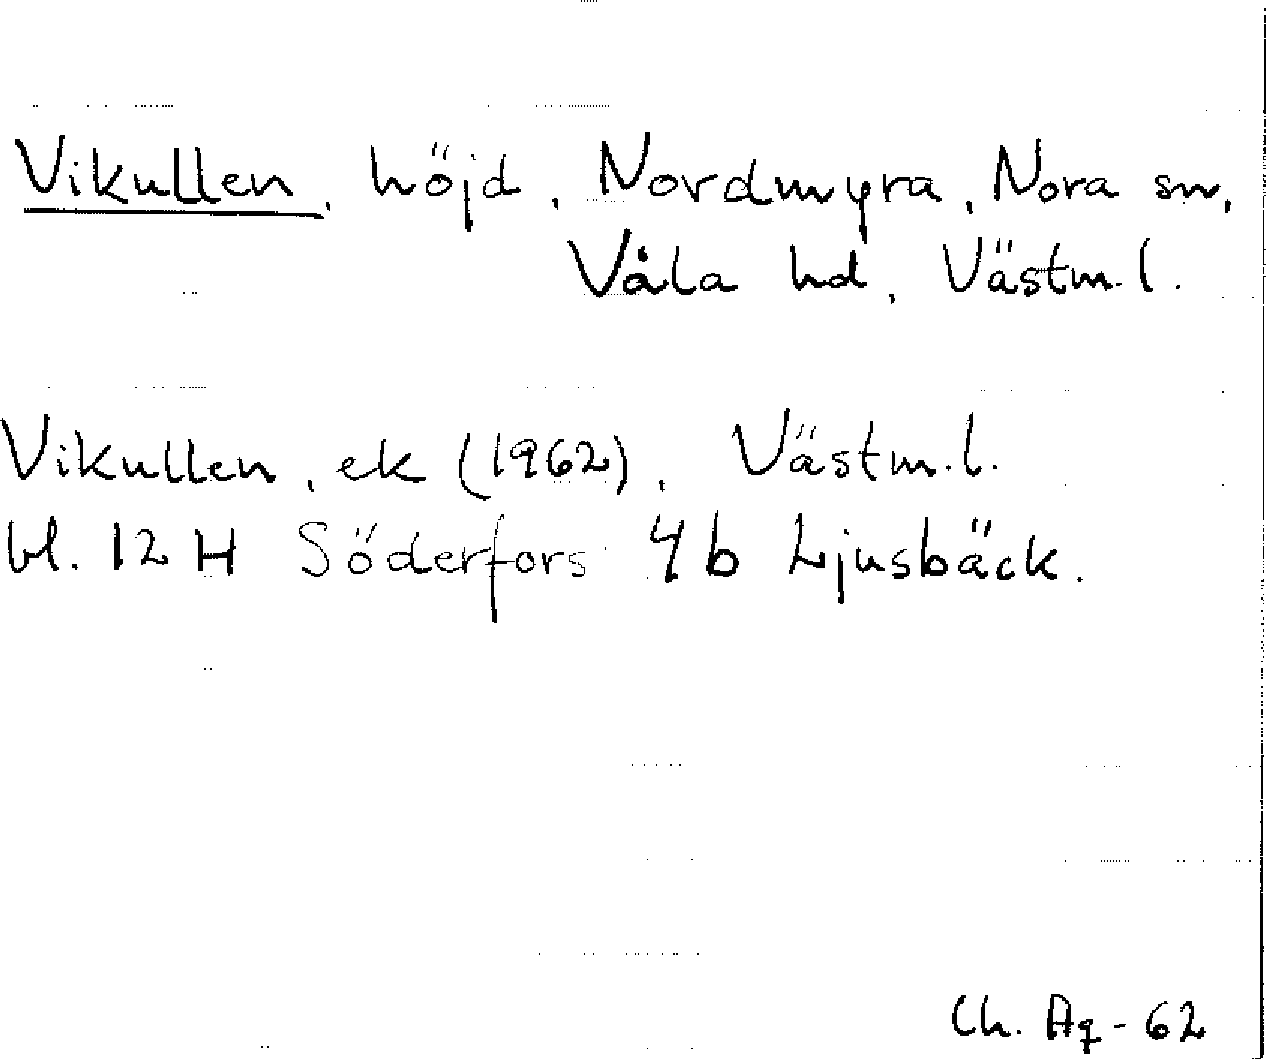 Vikullen, höjd, Nordmyra, Nora sn,
Våla hd, Västm. l.
Vikullen, ek (1962), Västm. l.
bl. 12 H Söderfors 4 b Ljusbäck.
Ch. Aq - 62